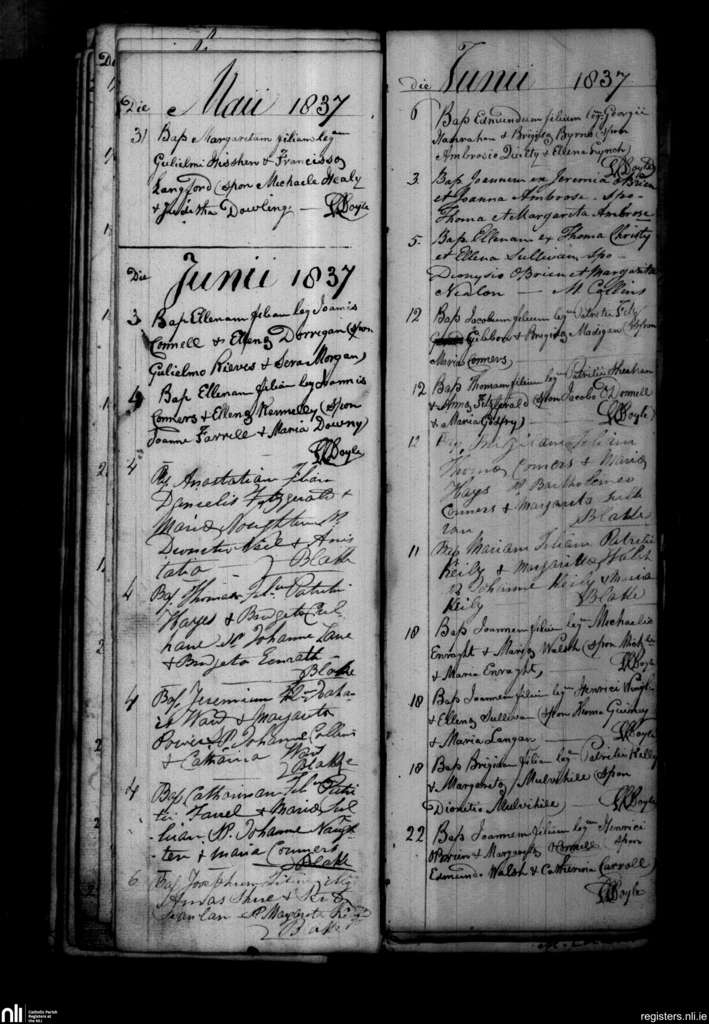 Die Maii 1837
31 Bap Margaretam filiam legm
Gulielmi & Francisca
Langford (spon Michaele Healy
& Juditha Dowling Boyle
Die Junii 1837
3 Bap Ellenam filiam leg Joannis
Connell & Ellena Dorregan (spon
Gulielmo Rieves & Morgan)
4 Bap Ellenam filiam leg Joannis
Conners & Ellena Kennelly (spon
Joanne Farrell & Maria Downy)
Boyle
4 Anastatian filiam
Danielis Fitzgerald &
Maria Noughten
Neil & Anis
tatia Blake
4 Bap Thomas Patritii
Hayes & Bridgeta
Sp Johanne Lane
& Bridgeta Enrath
Blake
4 Bap Jeremium
Ward & Margarita
Power Sp. Johanne Collins
& Catharina Ward
Blake
4 Bap Catharinam Patri
tii Farrel & Maria Sul
livan Sp. Johanne Naugh
ten & Maria Conners
Blake
6 Bap
Scanlan Sp Margreta
Blake
Die Junii 1837
6 Bap Edmundum filium leg Georgii
Hanrahan & Brigida Byrne (spon
Ambrosio & Ellena Lynch)
Boyle
3. Bap Joannem ex Jeremia OBrien
et Joanna Ambrose. Spo-
Thoma et Margarita Ambrose
5. Bap Ellenam ex Thoma Christy
et Ellena Sullivan spo-
Dionysio OBrien et Margarita
Nealon - M Collins
12 Bap Jacobum filium legm Patritii Fitz
Gibbon & Brigida Madigan (spon
Maria Conners)
12 Bap Thomam filium legm Patritii Sheehan
& Anna FitzGerald (spon Jacobo ODonnell
& Maria Godfry) Boyle
11 filiam
Thoma Conners & Maria
Hays Sp Bartholomeo
Conners & Margarita Sulli
van Blake
11 Bap Mariam filiam Patritii
Reily & Margarita Walsh
Sp Johanne Reily & Maria
Reily Blake
18 Bap Joannem filium legm Michaelis
Enraght & Marga Walsh (spon Mich
& Maria Enraght, Boyle
18 Bap Joannem filium legm Henrici
& Ellena Sullivan (spon Thoma
& Maria Langan Boyle
18 Bap Brigidam filiam legm Patritii Kelly
& Margareta Mulvihile (spon
Dionitio Mulvihile) Boyle
22 Bap Joannem filium legm Henrici
OBrien & Margareta Connell (spon
Edmundo Walsh & Catherina Carroll)
Boyle
nli
Catholic Parish
Registers at
the NLI
registers.nli.ie